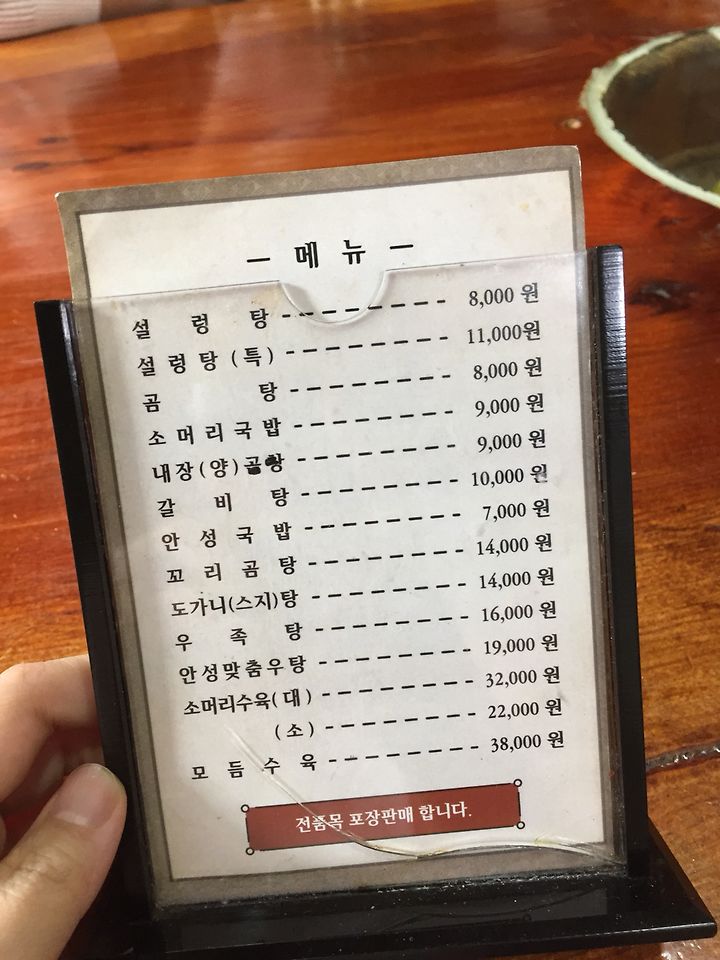 메뉴
설렁탕 8,000 원
설렁탕(특) 11,000원
곰탕 8,000 원
소머리국밥 9,000 원
내장(양)곰탕 9,000 원
갈비탕 10,000 원
안성국밥 7,000 원
꼬리곰탕 14,000 원
도가니(스지)탕 14,000 원
우족탕 16,000 원
안성맞춤우탕 19,000 원
소머리수육(대) 32,000 원
(소) 22,000 원
모듬수육 38,000 원
전품목 포장판매 합니다.